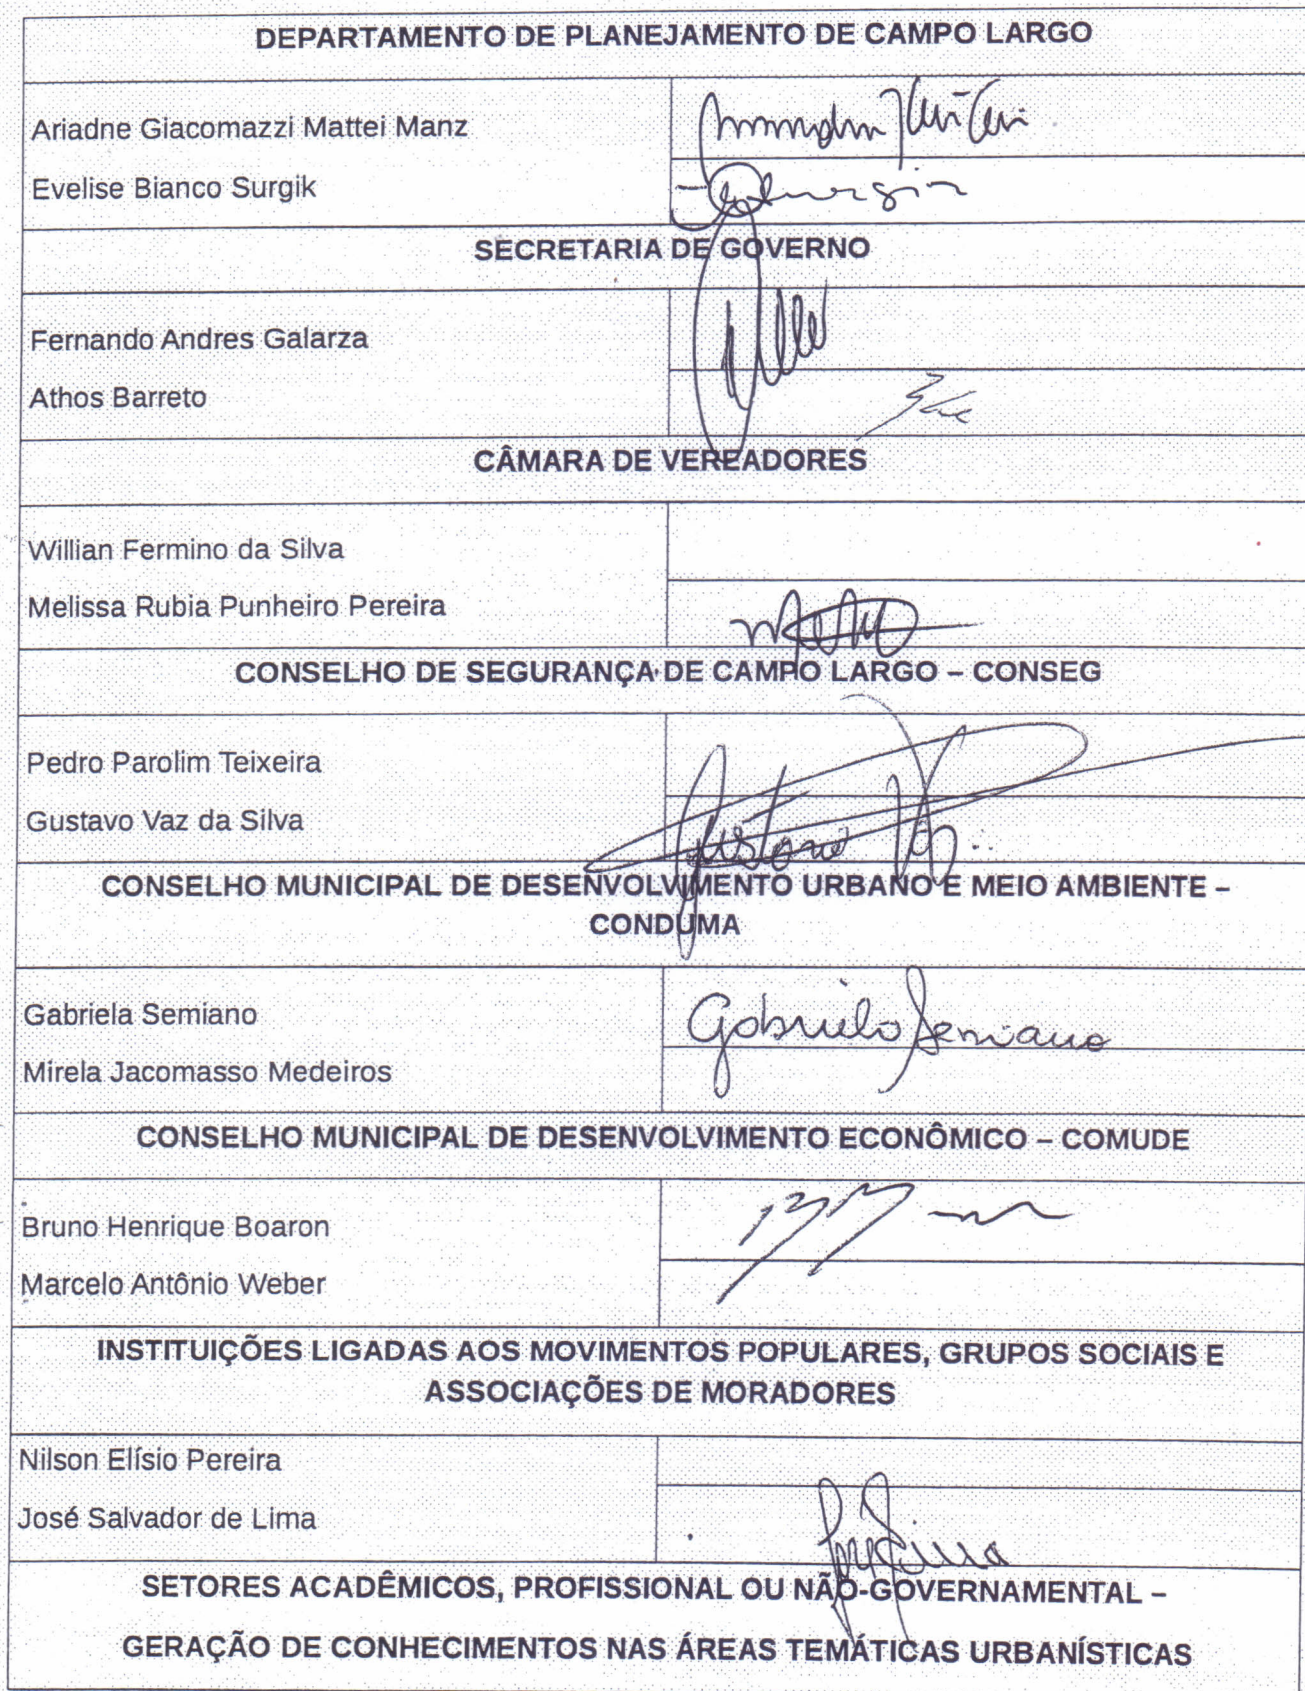 DEPARTAMENTO DE PLANEJAMENTO DE CAMPO LARGO
Ariadne Giacomazzi Mattei Manz
Evelise Bianco Surgik
SECRETARIA DE GOVERNO
Fernando Andres Galarza
Athos Barreto
CÂMARA DE VEREADORES
Willian Fermino da Silva
Melissa Rubia Punheiro Pereira
CONSELHO DE SEGURANÇA DE CAMPO LARGO – CONSEG
Pedro Parolim Teixeira
Gustavo Vaz da Silva
Gustavo
CONSELHO MUNICIPAL DE DESENVOLVIMENTO URBANO E MEIO AMBIENTE –
CONDUMA
Gabriela Semiano
Gabriela Semiano
Mirela Jacomasso Medeiros
CONSELHO MUNICIPAL DE DESENVOLVIMENTO ECONÔMICO – COMUDE
Bruno Henrique Boaron
Marcelo Antônio Weber
INSTITUIÇÕES LIGADAS AOS MOVIMENTOS POPULARES, GRUPOS SOCIAIS E
ASSOCIAÇÕES DE MORADORES
Nilson Elísio Pereira
José Salvador de Lima
SETORES ACADÊMICOS, PROFISSIONAL OU NÃO-GOVERNAMENTAL –
GERAÇÃO DE CONHECIMENTOS NAS ÁREAS TEMÁTICAS URBANÍSTICAS